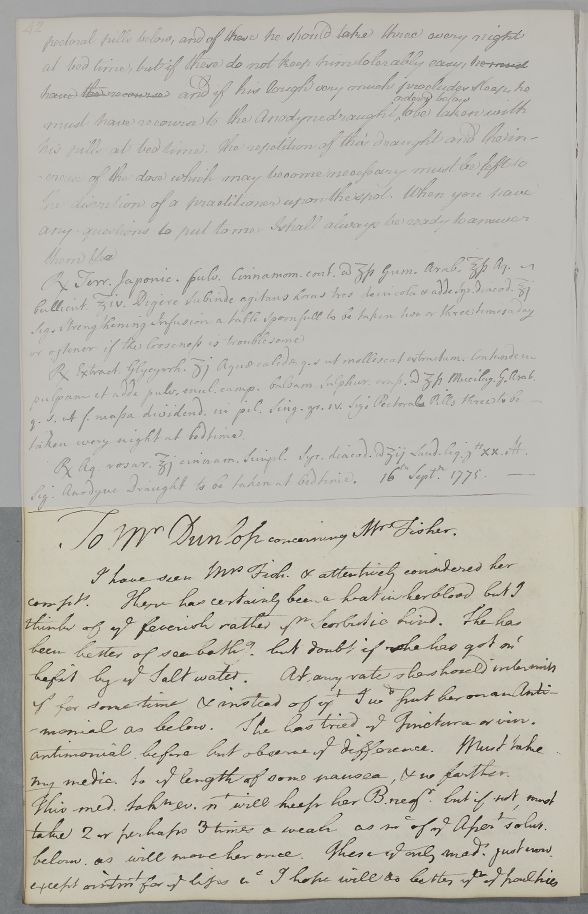 42
pectoral pills below, and of these he should take three every night
at bed time, but if these do not keep him tolerably easy, he must
have the recourse and if his Cough very much precludes sleep, he
must have recourse to the Anodyne draught to be taken with
his pills at bed time. The repetition of this draught and the in-
-crease of the dose which may become necessary must be left to
the discretion of a practitioner upon the spot. When you have
any questions to put to me I shall always be ready to answer
them
℞ Terr. Japonic. pulv. Cinnamom. cont. Gum. Arab. Aq.
bullient. ℥iv. Digere subinde agitans horas tres
Sig. Strengthening Infusion a table spoonfull to be taken two or three times a day
or oftener if the Looseness is troublesome
℞ Extract. Glycyrrh. ʒj Aquæ calidæ q. s. ut mollescat extractum. Contunde in
pulpam et adde pulv. balsam. Sulphur. Mucilag. G. Arab.
q. s. ut f. massa dividend. in pil. sing. gr. iv. Sig. Pectoral Pills three to be
taken every night at bedtime.
℞ Aq. rosar. ℥j cinnam. simpl. Syr. diacod. Laud. liq. gtt xx. M.
Sig. Anodyne Draught to be taken at bedtime. 16th Septr. 1775.
To Mr Dunlop concerning Mrs Fisher.
I have seen Mrs Fish. & attentively considered her
compts. There has certainly been a heat in her blood but I
think of ye feverish rather yn Scorbutic kind. She has
been better of sea bathg. but doubt if she has got mh
befit by ye Salt water. At any rate she should intermit
yt for some time & instead of yt I wd put her on an Anti-
-monial as below. She has tried ye Tinctura or vin.
antimonial before but observe ye difference. Must take
my medic. to ye length of some nausea, & no farther.
This med. tak. nt will keep her B. regr. but if not must
take 2 or perhaps 3 times a week as mh of ye Apert solut.
below. as will move her once. These ye only meds. just now
except ointmt for ye lips wc I hope will do better yn ye poultices